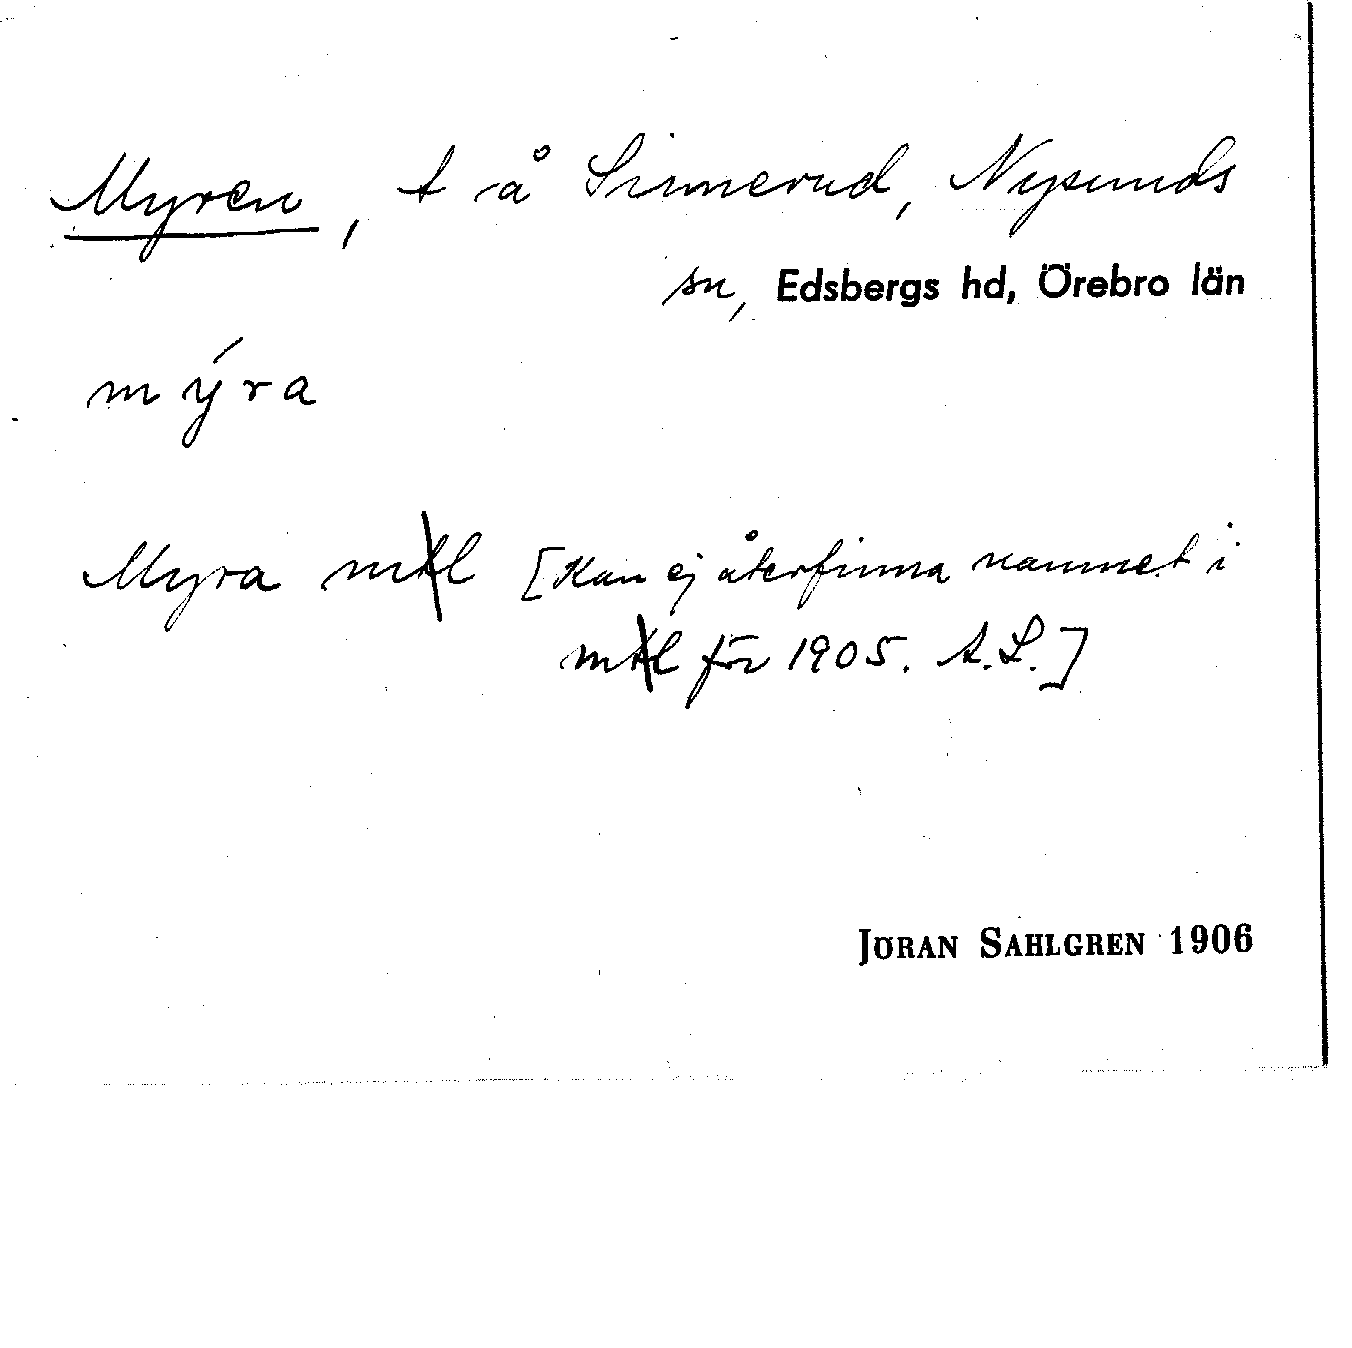 Myren, t å Sinnerud, Nysunds
sn, Edsbergs hd, Örebro län
mýra
Myra mtl [Kan ej återfinna namnet i
mtl för 1905. A.L.]
JÖRAN SAHLGREN 1906